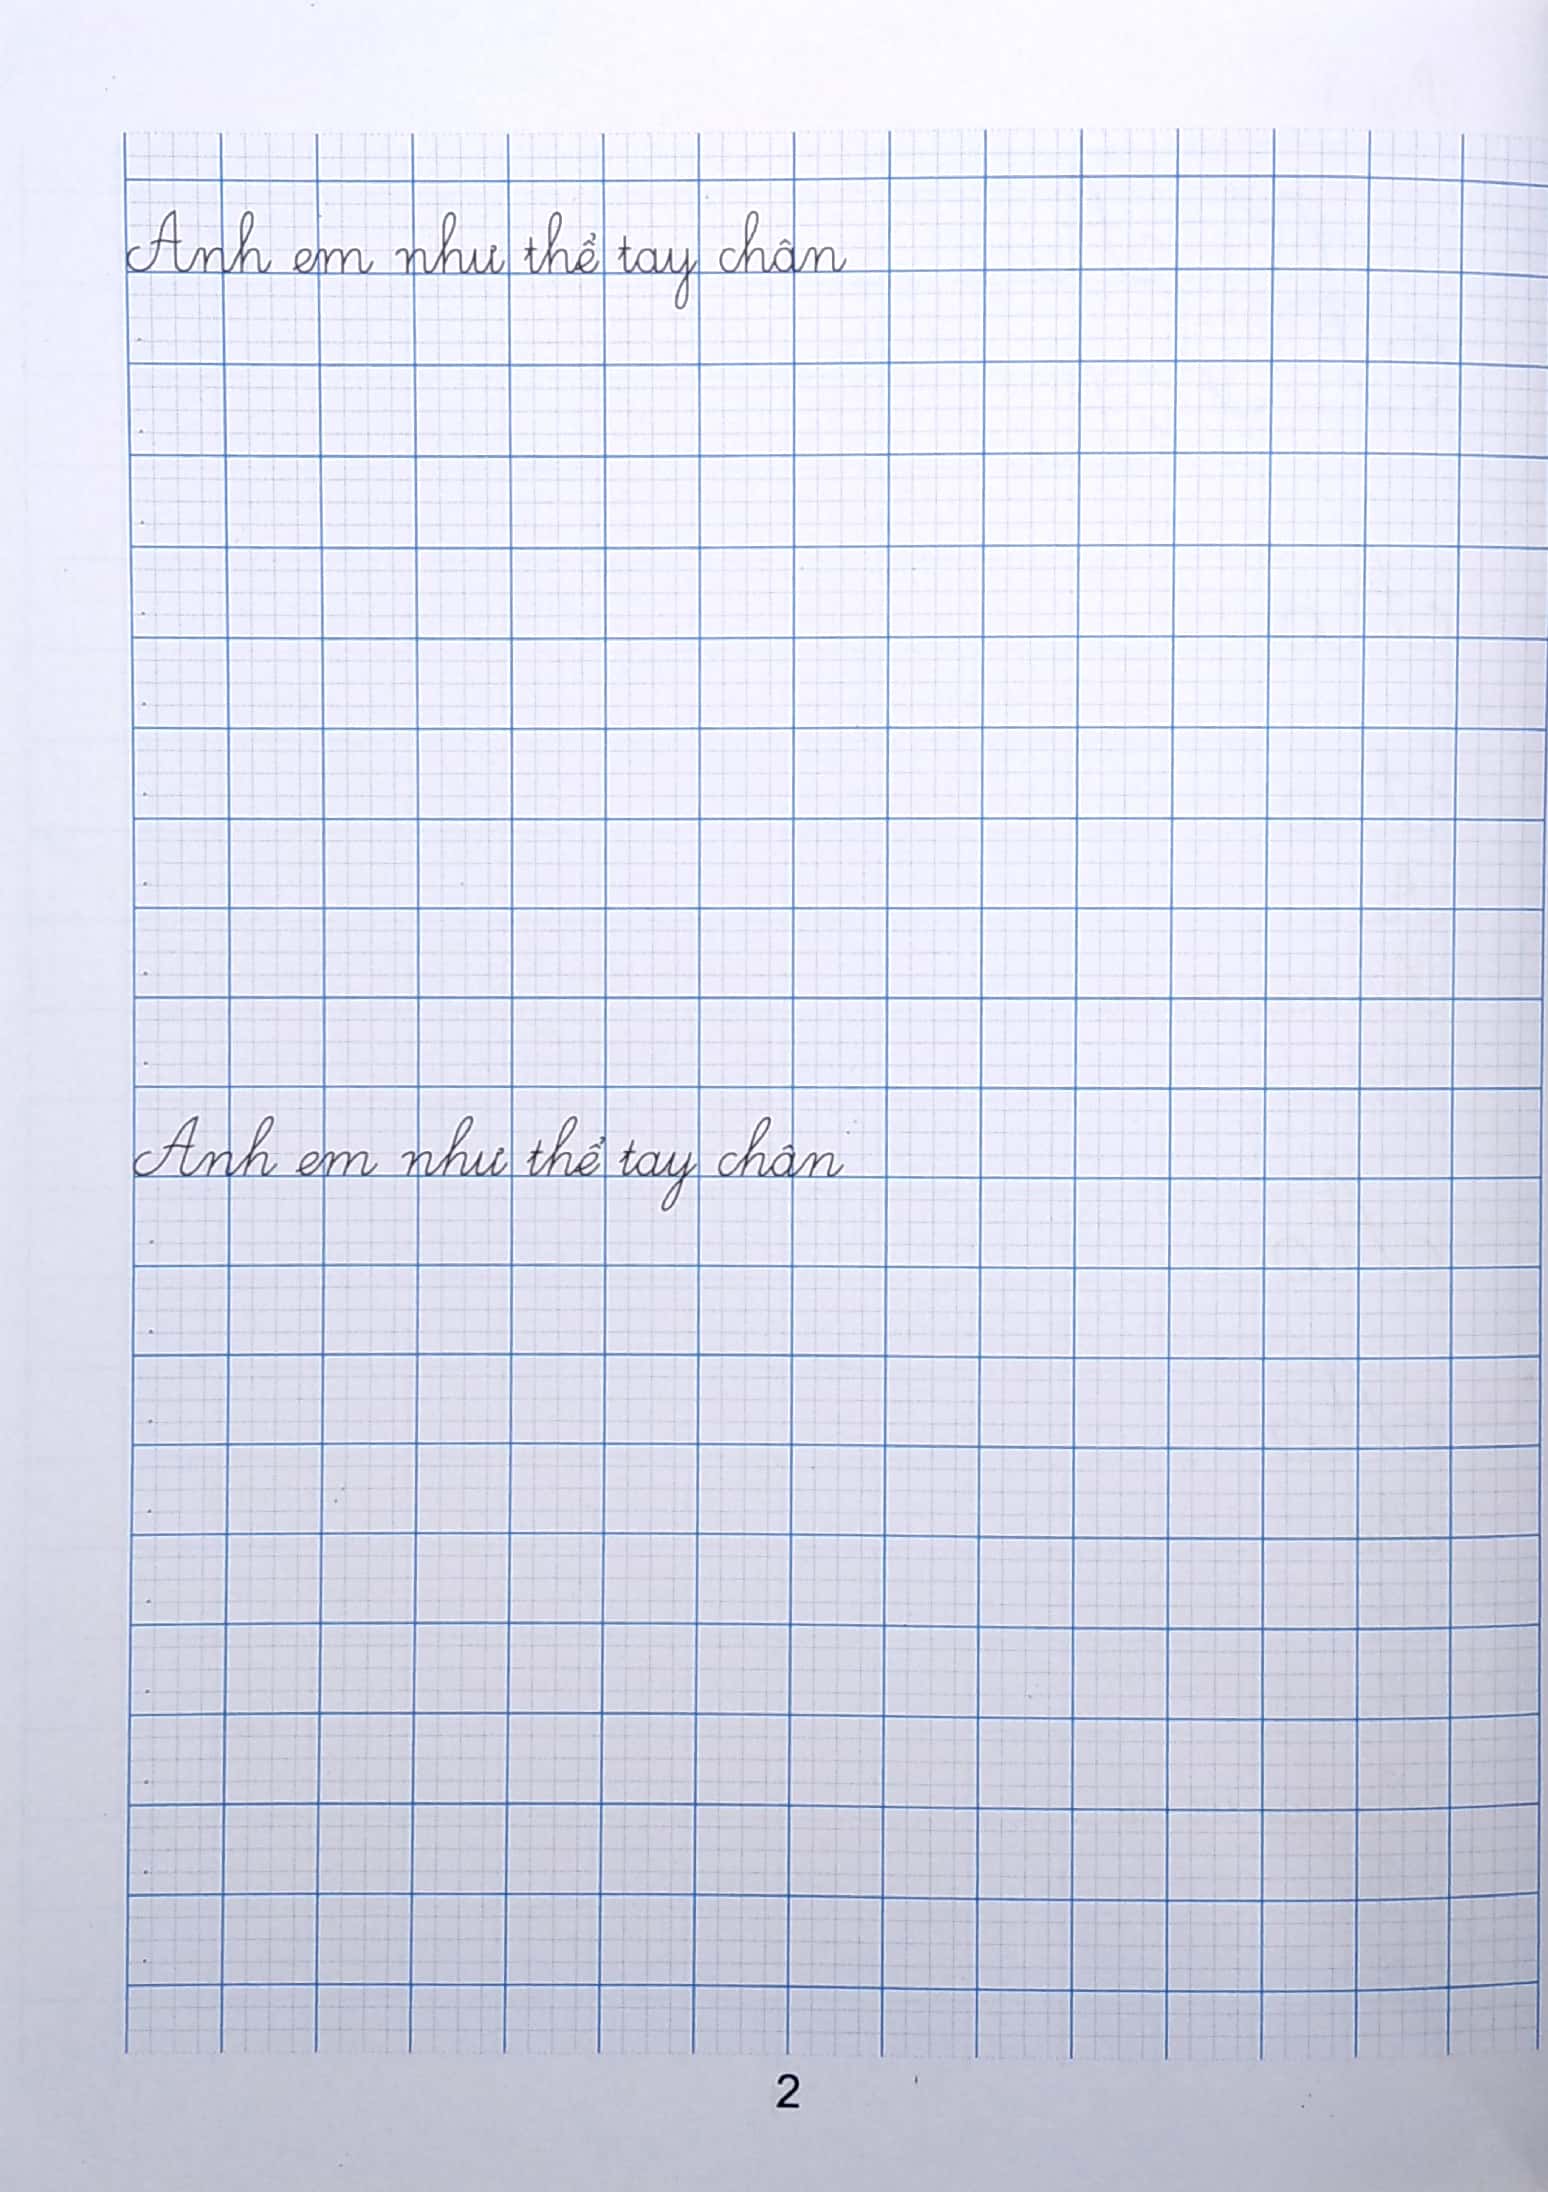 Anh em như thể tay chân
Anh em như thể tay chân
2